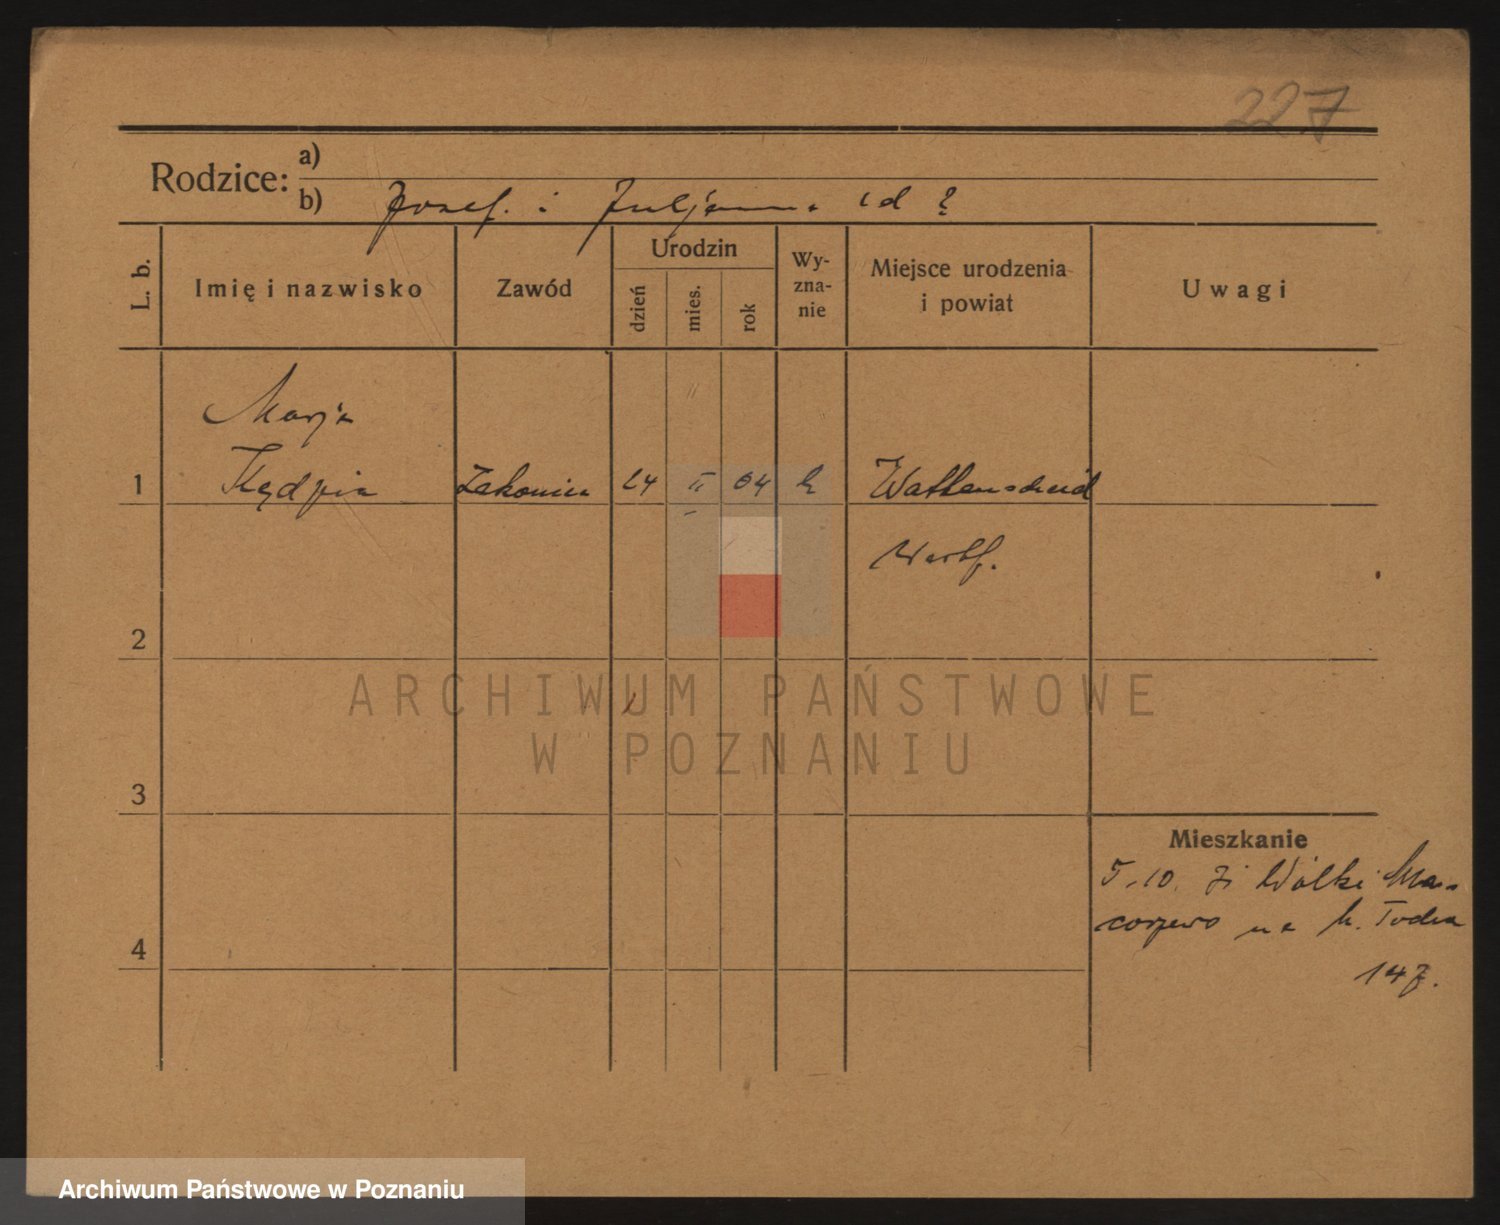 227
Rodzice:
a)
b) Josef. i Juljanna
L. b.
Imię i nazwisko
Zawód
Urodzin
dzień
mies.
rok
Wy-
zna-
nie
Miejsce urodzenia
i powiat
Uwagi
Marja
1 Kędzia Zakonnica 24 II 04 k Wattenscheid
Westf.
2
3
4
Mieszkanie
5.10. Wólki
na
147.
ARCHIWUM PAŃSTWOWE
W POZNANIU
Archiwum Państwowe w Poznaniu